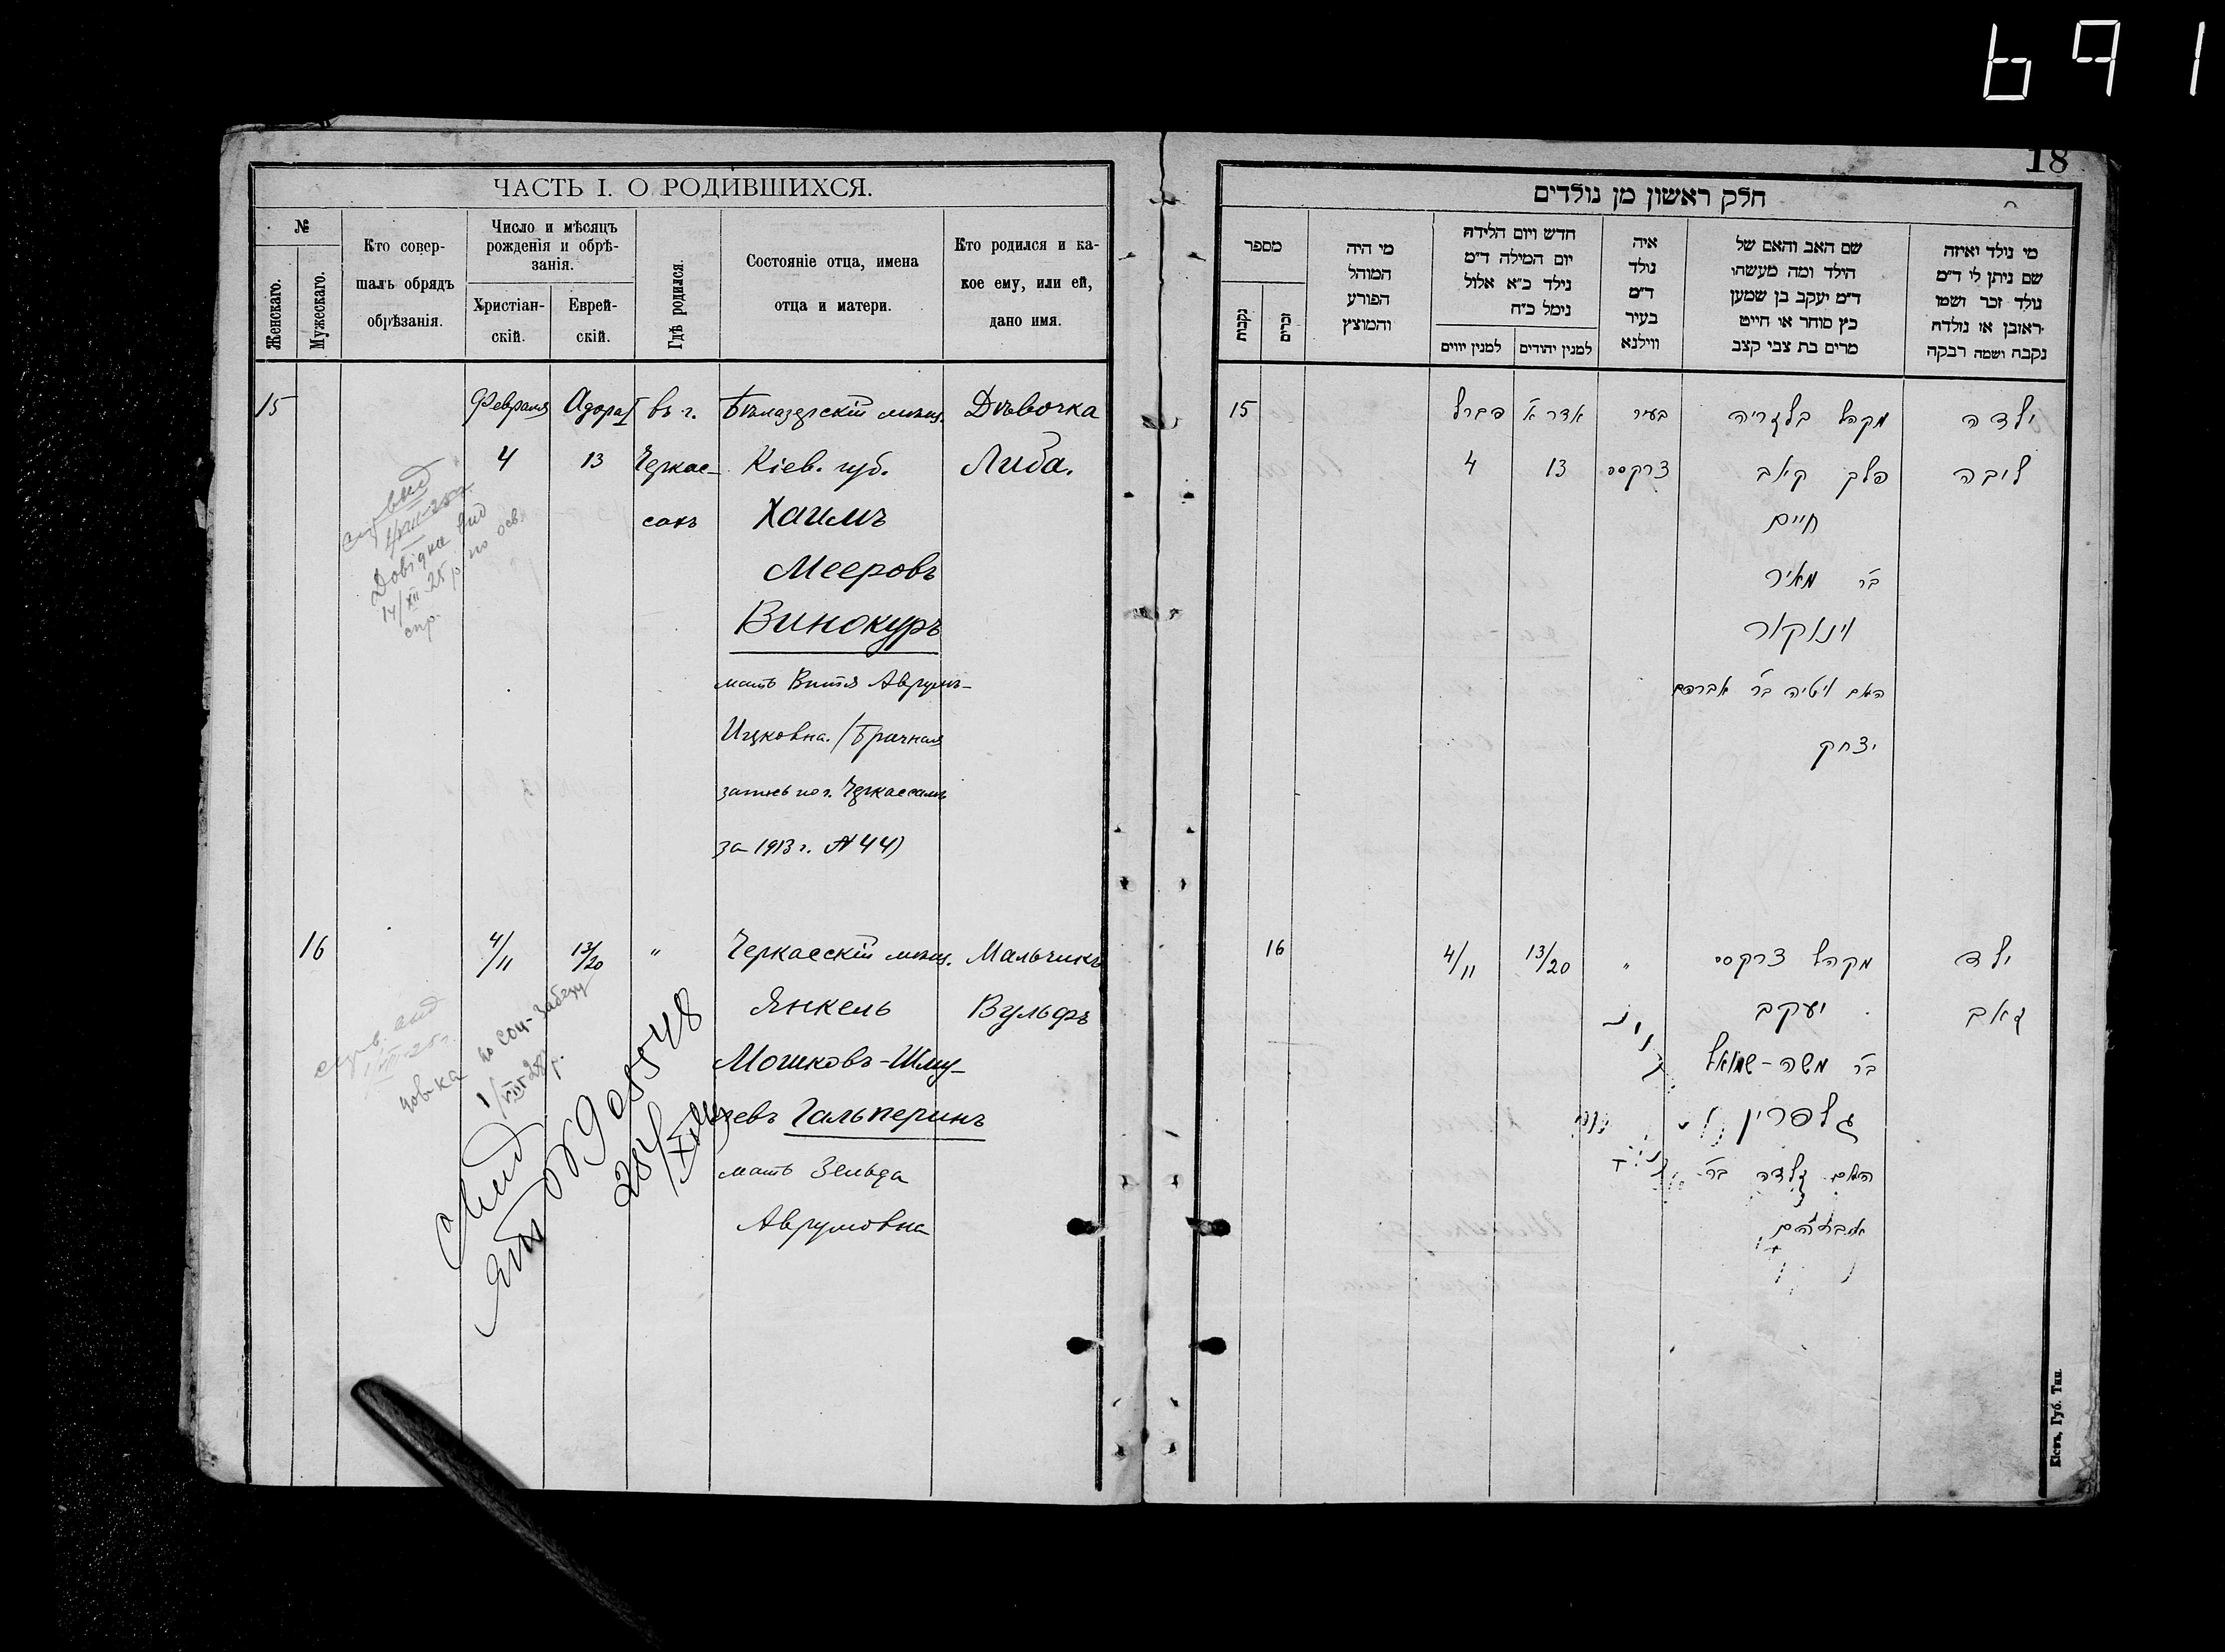 691
18
ЧАСТЬ I. О РОДИВШИХСЯ.
№
Женскаго.
Мужескаго.
Кто совер-
шалъ обрядъ
обрѣзанія.
Число и мѣсяцъ
рожденія и обрѣ-
занія.
Христіан-
скій.
Еврей-
скій.
Гдѣ родился.
Состояніе отца, имена
отца и матери.
Кто родился и ка-
кое ему, или ей,
дано имя.
15
Февраля
4
Адора I
13
въ г.
Черкас-
сахъ
Бѣлазерскій мѣщ.
Кіев. губ.
Хаимъ
Мееровъ
Винокуръ
мать Витя Аврумъ-
Ицковна. (Брачная
запись по г. Черкассамъ
за 1913 г. № 44)
Дѣвочка
Либа.
Довідка вид
14/XII-25 р. по
спр.
16
4/11
13/20
"
Черкасскій мѣщ.
Янкель
Мошковъ-Шму-
левъ Гальперинъ
мать Зельда
Аврумовна
Мальчикъ
Вульфъ
חלק ראשון מן נולדים
מספר
נקבות
זכרים
מי היה
המוהל
הפורע
והמוצץ
חדש ויום הלידה
יום המילה ד״מ
נילד כ״א אלול
נימל כ״ח
למנין יווים
למנין יהודים
איה
נולד
ד״מ
בעיר
ווילנא
שם האב והאם של
הילד ומה מעשהו
ד״מ יעקב בן שמען
כץ סוחר או חייט
מרים בת צבי קצב
מי נולד ואיזה
שם ניתן לי ד״מ
נולד זכר ושמו
ראובן או נולדה
נקבה ושמה רבקה
15
פברל
4
אדר א׳
13
בעיר
צרקסס
מקהל בלזריה
פלך קיאב
חיים
בר מאיר
וינאקור
האם וויטיה בר אברהם
יצחק
ילדה
ליבה
16
4/11
13/20
"
מקהל צרקסס
יעקב
בר משה-שמואל
גלפרין
האם זלדה בר
אברהם
ילד
זאב
Кіевъ, Губ. Тип.